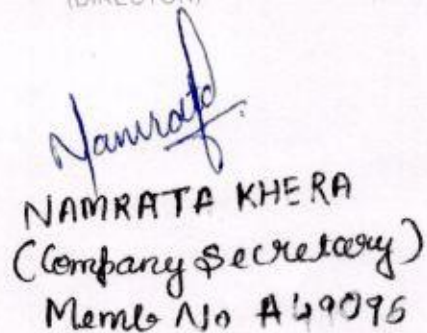 (DIRECTOR)
Namrata
NAMRATA KHERA
(Company Secretary)
Memb No A49095